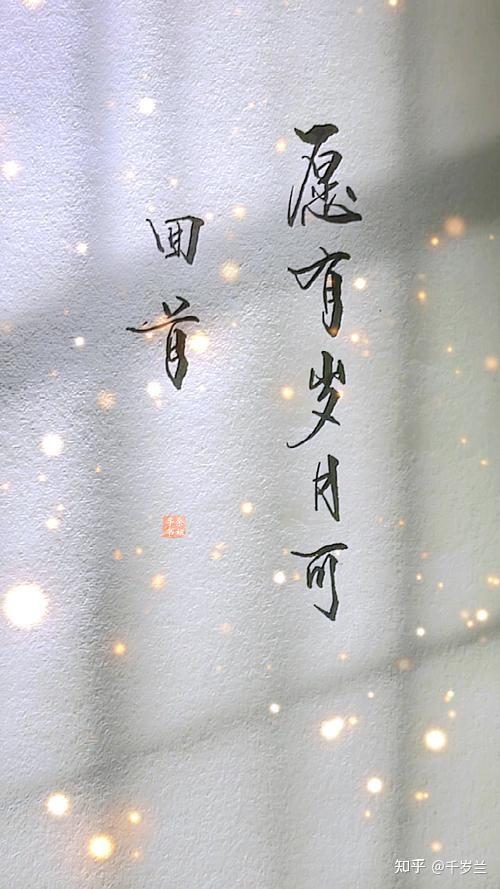 愿有岁月可
回首
知乎 @千岁兰